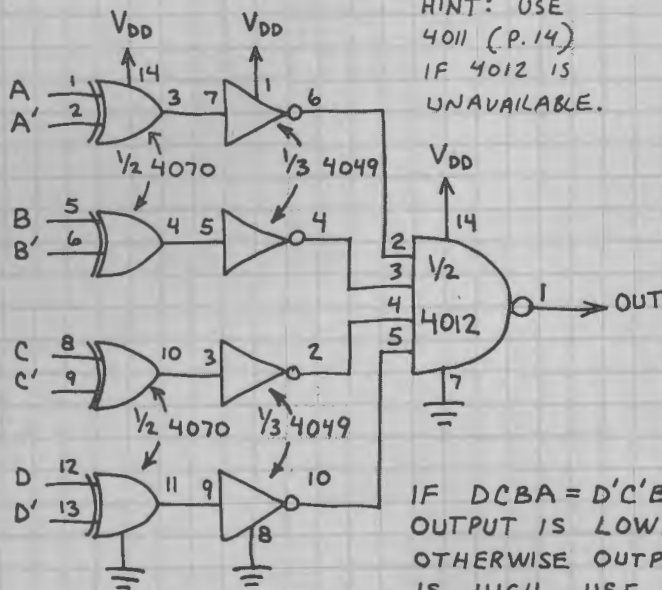 HINT: USE
4011 (P.14)
IF 4012 IS
UNAVAILABLE.
VDD
VDD
14
1
A 1
A' 2
3
7
6
1/2 4070
1/3 4049
B 5
B' 6
4
5
4
VDD
14
2
3
4
5
1/2
4012
1
OUT
7
C 8
C' 9
10
3
2
1/2 4070
1/3 4049
D 12
D' 13
11
9
10
8
IF DCBA = D'C'B
OUTPUT IS LOW
OTHERWISE OUTP
IS HIGH USE